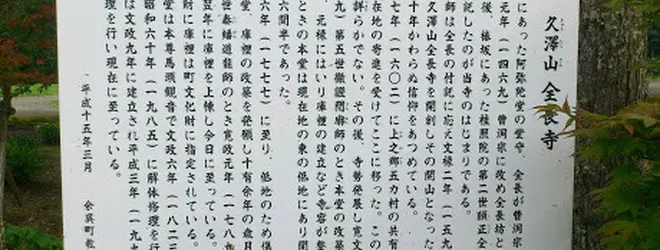 久澤山 全長寺
にあった阿弥陀堂の堂守、全長が曹洞宗
元年（一四六九）曹洞宗に改め全長坊と
後、椿坂にあった桂照院の第二世頭正全
託したのが当寺のはじまりである。
師は全長の付託に応え文禄二年（一五九
久澤山全長寺を開創しその開山となった
十年かわらぬ信仰をあつめている。
七年（一六〇二）に上之郷五カ村の共有
在地の寄進を受けてここに移った。この
詳らかでない。その後、寺勢発展し寛文
九）第五世徹證聞廓師のとき本堂の改築
、元禄にはいり庫裡の建立など寺容が整
ときの本堂は現在地の東の低地にあり間
六間半であった。
六年（一七七七）に至り、低地のため傷
堂、庫裡の改築を発願し十有余年の歳月
世泰嶺道龍師のとき寛政元年（一七八九
翌年に庫裡を上棟し今日に至っている。
財に庫裡は町文化財に指定されている。
堂は本尊馬頭観音で文政六年（一八二三
昭和六十年（一九八五）に解体修理を行
は文政九年に建立され平成三年（一九九
理を行い現在に至っている。
平成十五年三月
余呉町教